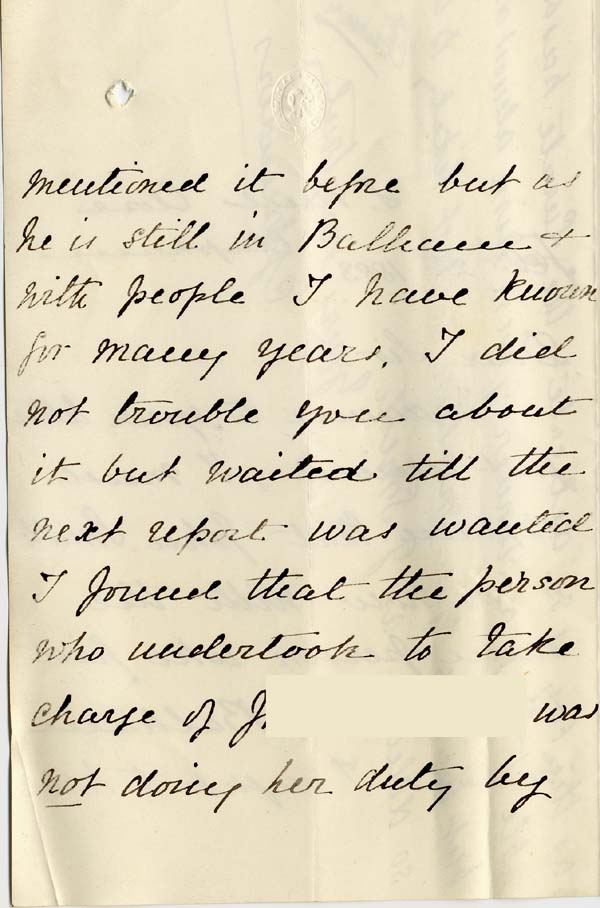 mentioned it before but as
he is still in Balham &
with people I have known
for many years. I did
not trouble you about
it but waited till the
next report was wanted
I found that the person
who undertook to take
charge of J. was
not doing her duty by